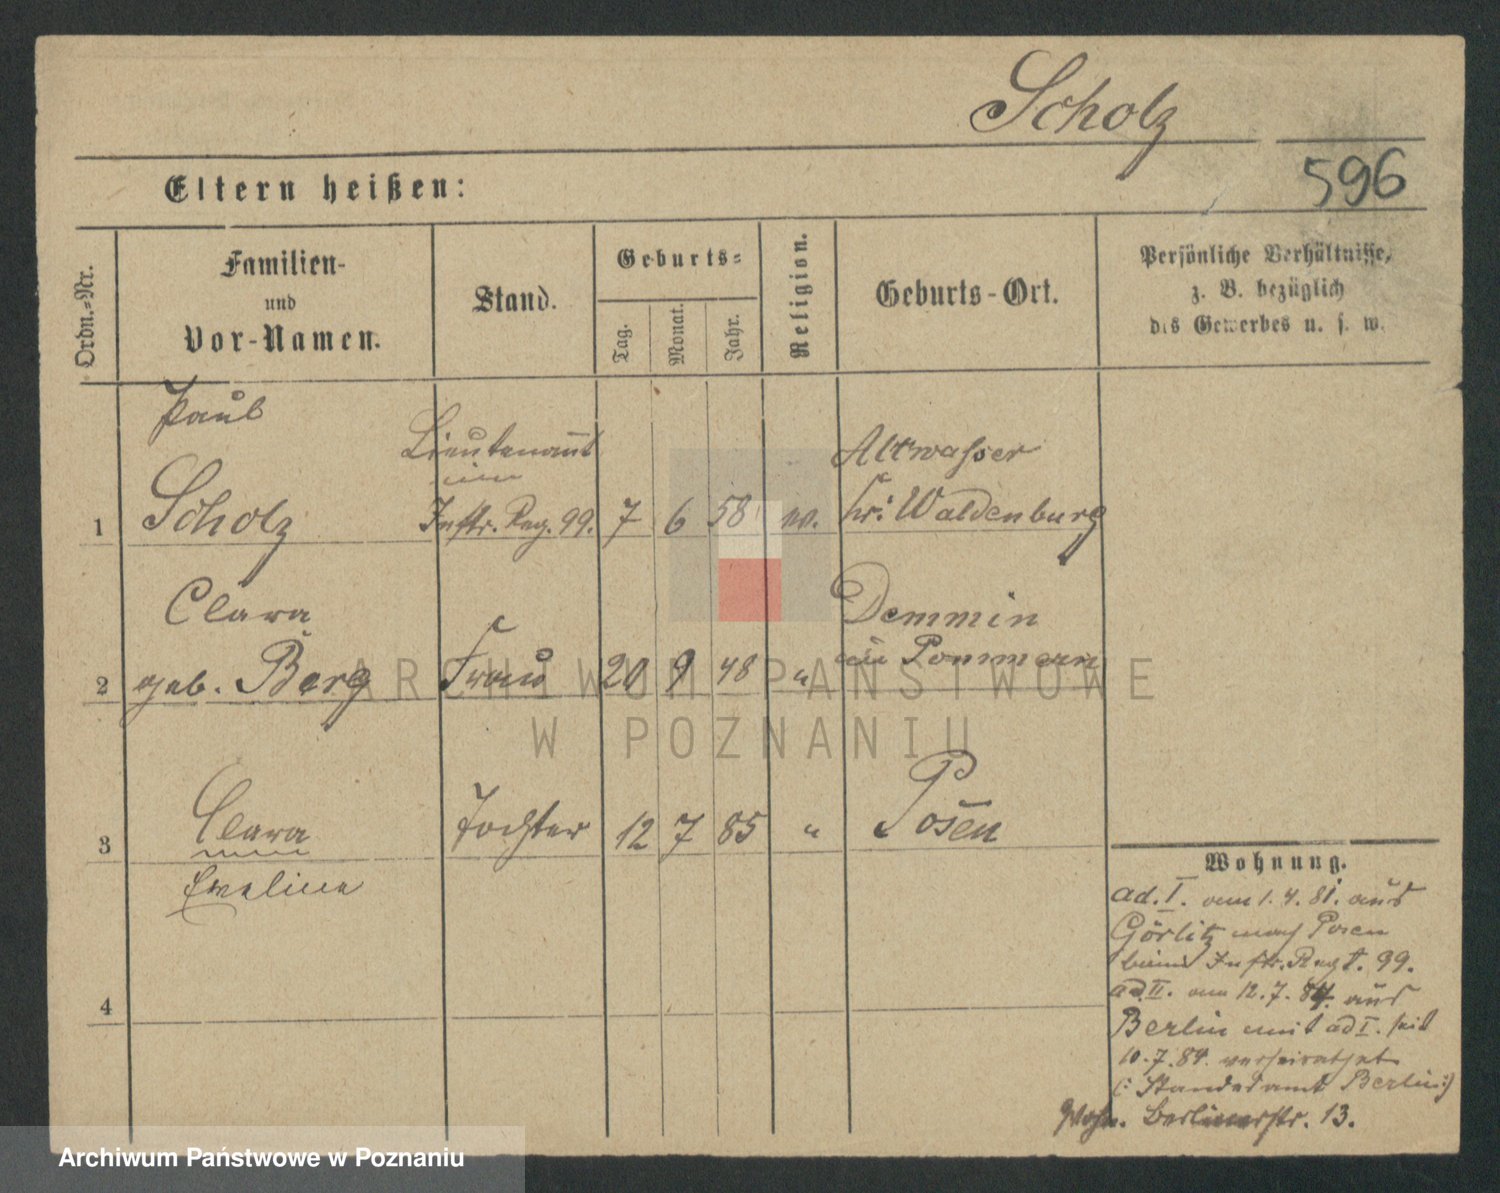 Scholz
596
Eltern heißen:
Ordn.-Nr.
Familien-
und
Vor-Namen.
Stand.
Geburts-
Tag.
Monat.
Jahr.
Religion.
Geburts-Ort.
Persönliche Verhältnisse,
z. B. bezüglich
des Gewerbes u. s. w.
Paul
Lieutenant
im
Altwasser
1 Scholz Inftr. Reg. 99. 7 6 58 ev. Kr: Waldenburg
Clara
Demmin
in Pommern
2 geb. Berg Frau 20 9 48 "
3 Clara Tochter 12 7 85 " Posen
Eveline
4
Wohnung.
ad. I. vom 1. 4. 81. aus
Görlitz nach Posen
beim Inftr. Regt. 99.
ad II. am 12. 7. 84. aus
Berlin mit ad I. seit
10. 7. 84. verheirathet
(: Standesamt Berlin :)
Wohn. Berlinerstr. 13.
ARCHIWUM PAŃSTWOWE
W POZNANIU
Archiwum Państwowe w Poznaniu